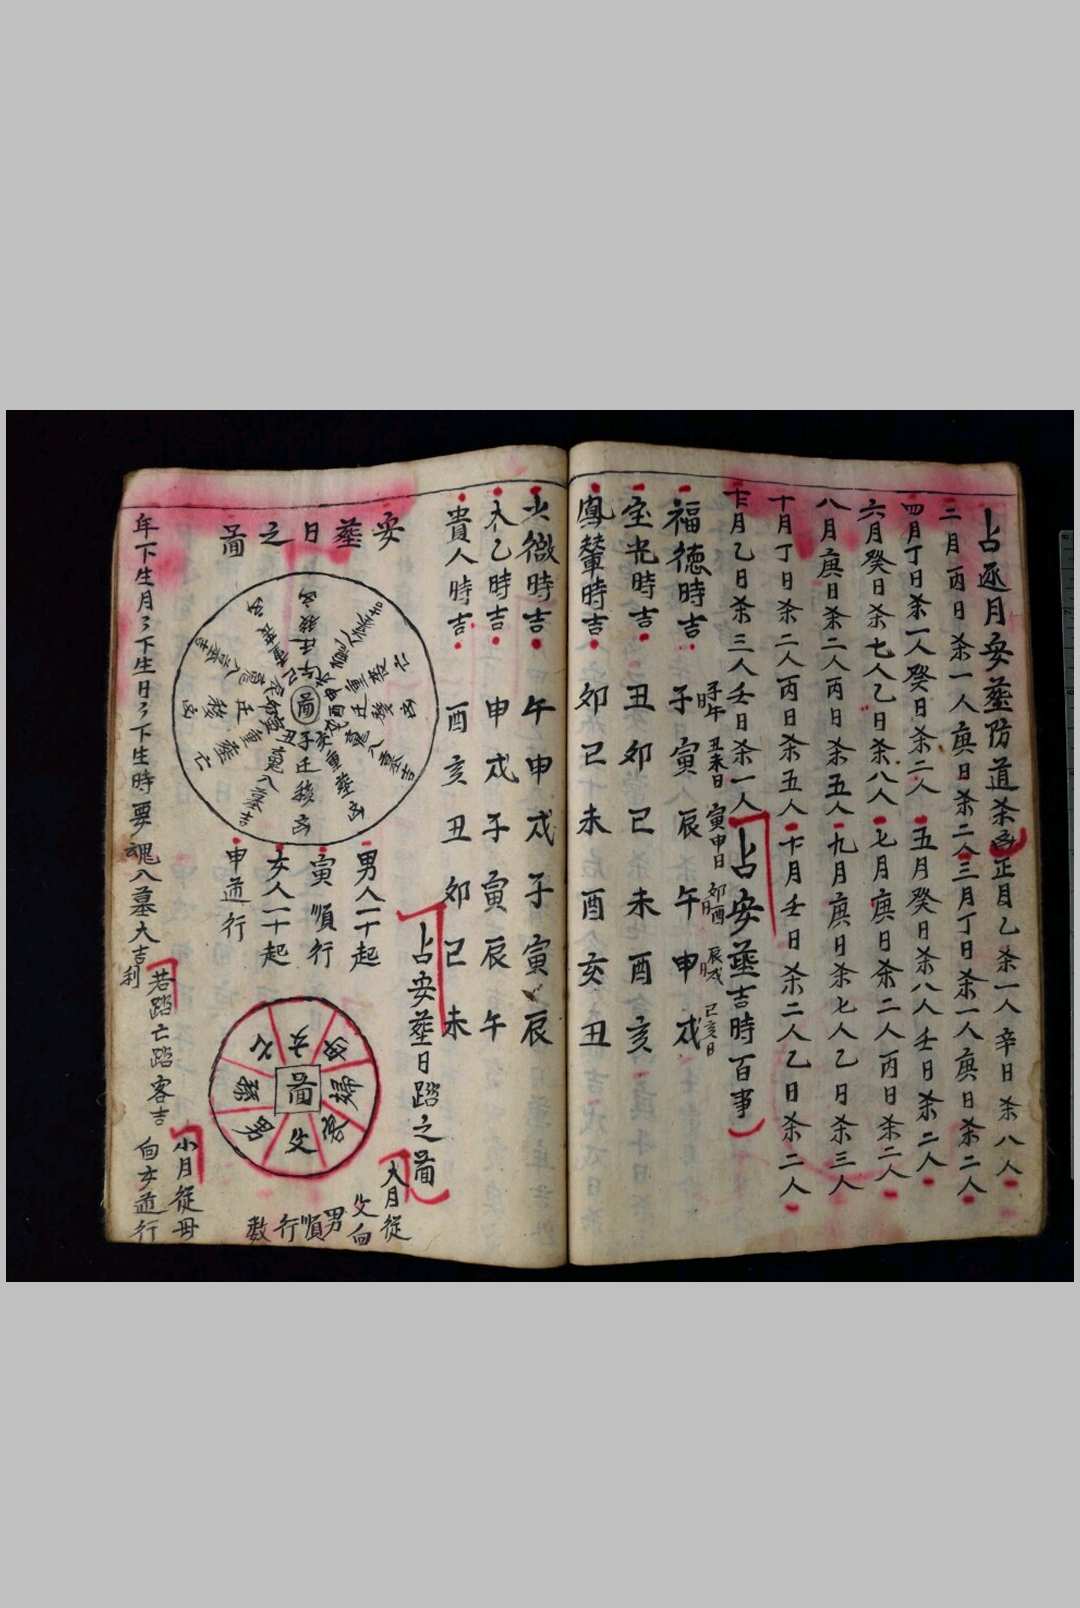 占逐月安葬防道杀凶正月乙杀一人辛日杀八人
二月丙日杀一人庚日杀二人三月丁日杀一人庚日杀二人
四月丁日杀一人癸日杀二人五月癸日杀八人壬日杀二人
六月癸日杀七人乙日杀八人七月庚日杀二人丙日杀二人
八月庚日杀二人丙日杀五人九月庚日杀七人乙日杀三人
十月丁日杀二人丙日杀五人十月壬日杀二人乙日杀二人
十月乙日杀三人壬日杀一人占安葬吉時百事
子午日 丑未日 寅申日 卯酉日 辰戌日 巳亥日
福德時吉 子寅辰午申戌
宝光時吉 丑卯巳未酉亥
鳳輦時吉 卯巳未酉亥丑
太微時吉 午申戌子寅辰
太乙時吉 申戌子寅辰午
貴人時吉 酉亥丑卯巳未
占安葬日蹈之啚
安葬日之啚
啚
男人一十起
寅順行
女人一十起
申逆行
啚
父
男
孫
女
母
婦
客
大月従
父向
男順行数
小月従母
向女逆行
若蹈亡蹈客吉
年下生月々下生日々下生時要魂入墓大吉利